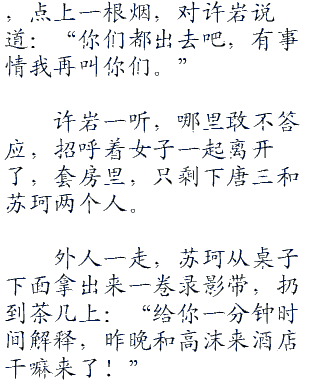 ，点上一根烟，对许岩说
道：“你们都出去吧，有事
情我再叫你们。”
许岩一听，哪里敢不答
应，招呼着女子一起离开
了，套房里，只剩下唐三和
苏珂两个人。
外人一走，苏珂从桌子
下面拿出来一卷录影带，扔
到茶几上：“给你一分钟时
间解释，昨晚和高沫来酒店
干嘛来了！”